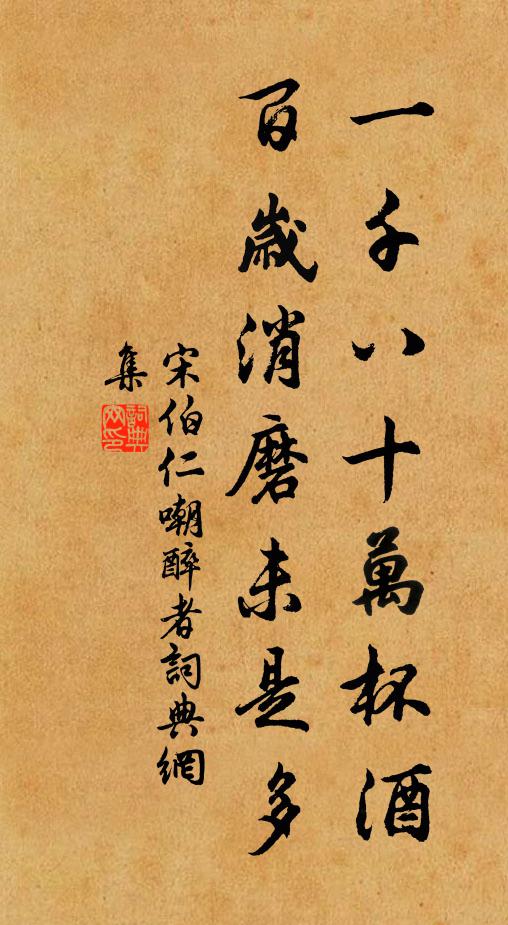 一千八十萬杯酒
百歲消磨未是多
宋伯仁嘲醉者詞典網
集
詞典網印